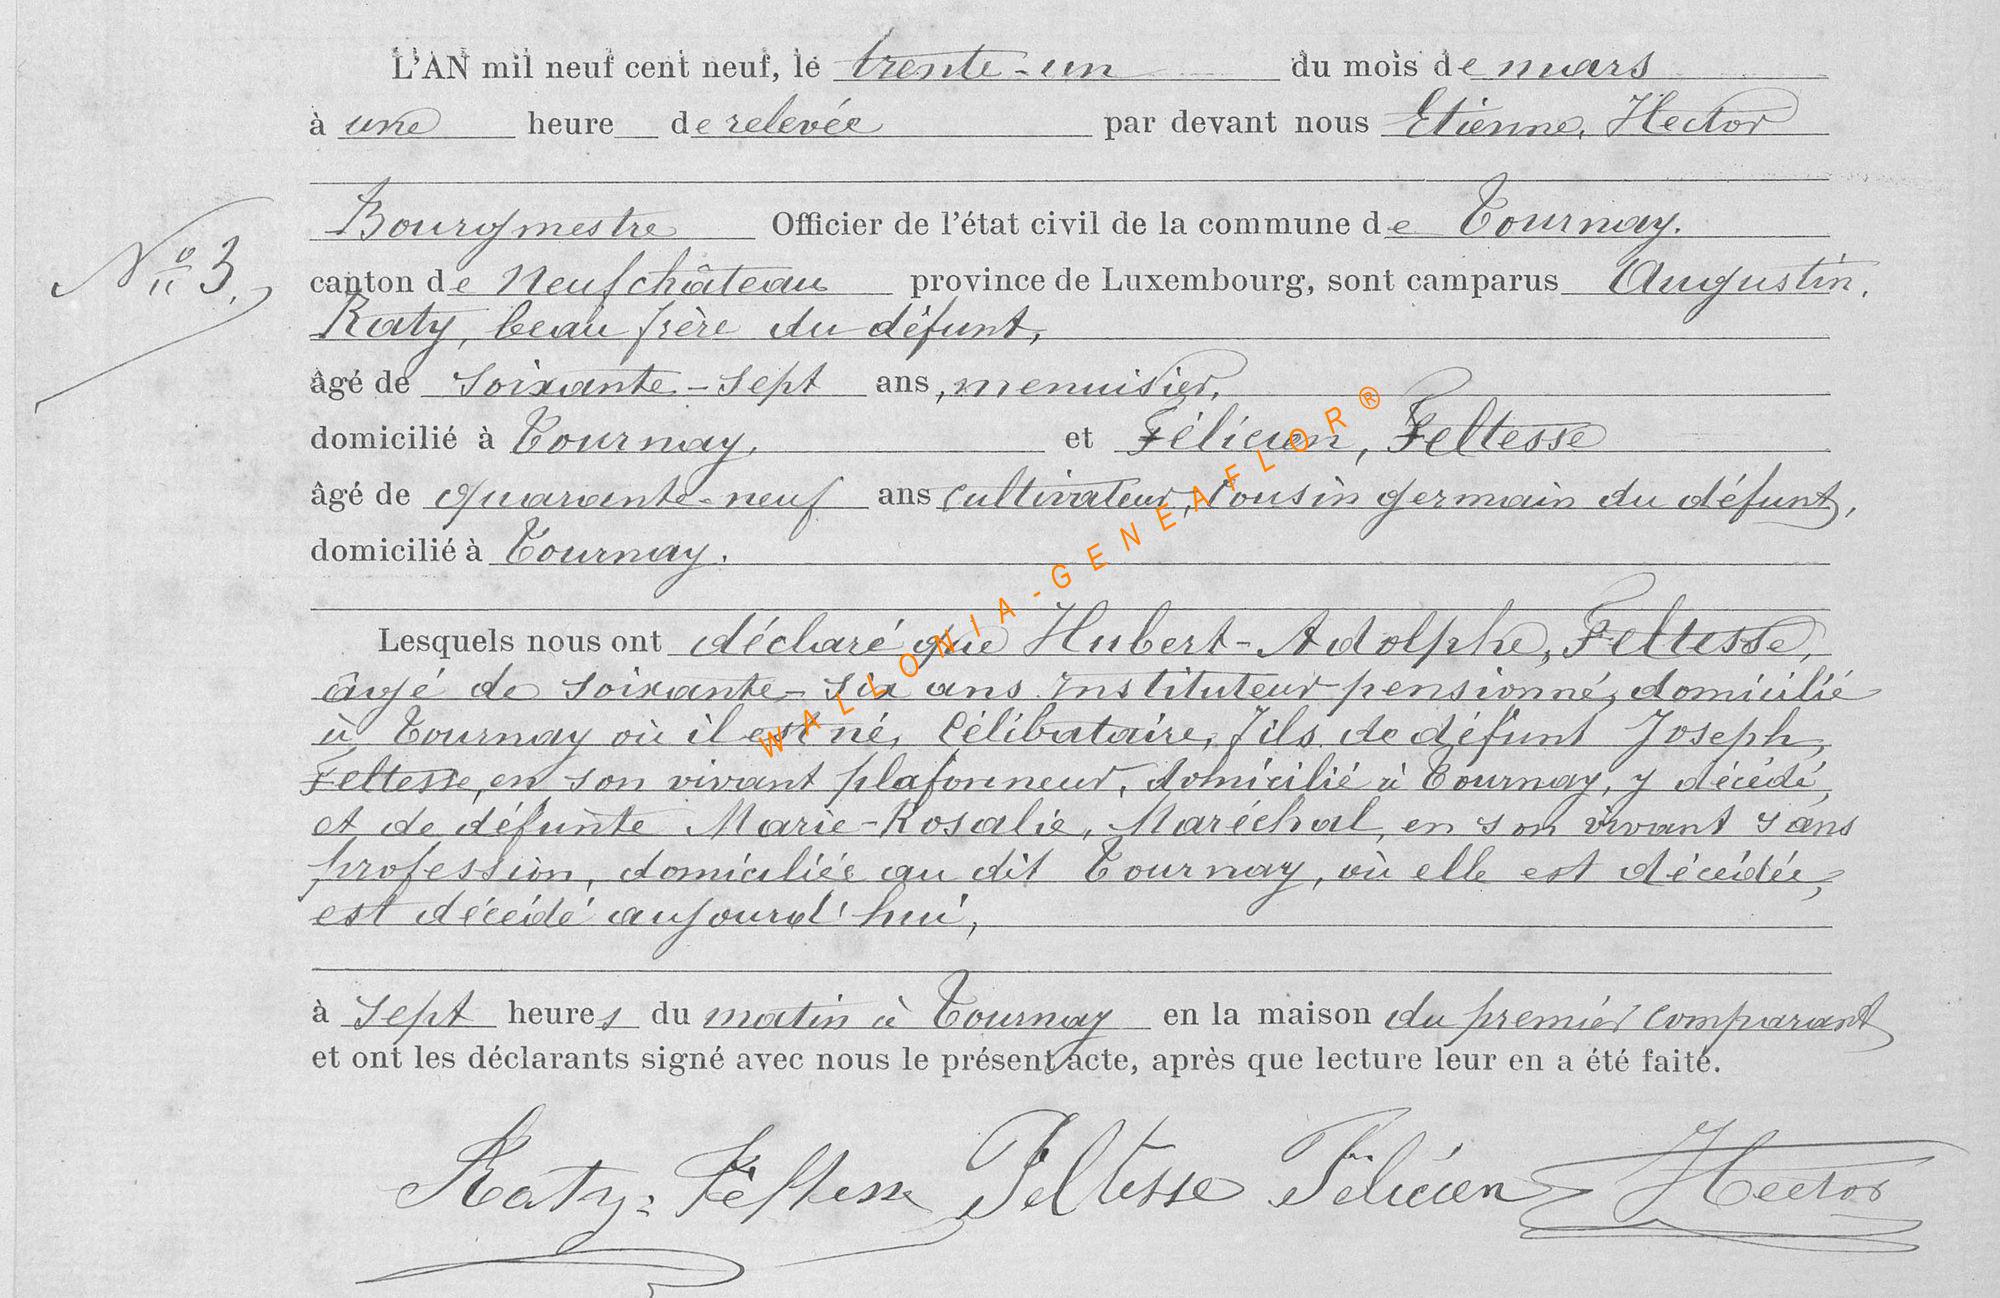 L'AN mil neuf cent neuf, le trente-un du mois de mars
à une heure de relevée par devant nous Etienne, Hector
Bourgmestre Officier de l'état civil de la commune de Tournay.
N° 3.
canton de Neufchâteau province de Luxembourg, sont camparus Augustin,
Katy, beau frère du défunt,
âgé de soixante-sept ans, menuisier,
domicilié à Tournay, et Félicien, Feltesse
âgé de quarante-neuf ans cultivateur, cousin germain du défunt,
domicilié à Tournay.
Lesquels nous ont déclaré que Hubert-Adolphe, Feltesse,
âgé de soixante-six ans instituteur pensionné, domicilié
à Tournay où il est né, célibataire, fils de défunt Joseph,
Feltesse, en son vivant plafonneur, domicilié à Tournay, y décédé,
et de défunte Marie-Rosalie, Maréchal, en son vivant sans
profession, domiciliée au dit Tournay, où elle est décédée,
est décédé aujourd'hui,
à sept heures du matin à Tournay en la maison du premier comparant
et ont les déclarants signé avec nous le présent acte, après que lecture leur en a été faite.
Katy-Feltesse Feltesse Félicien Hector
WALLONIA-GENEAFLOR®